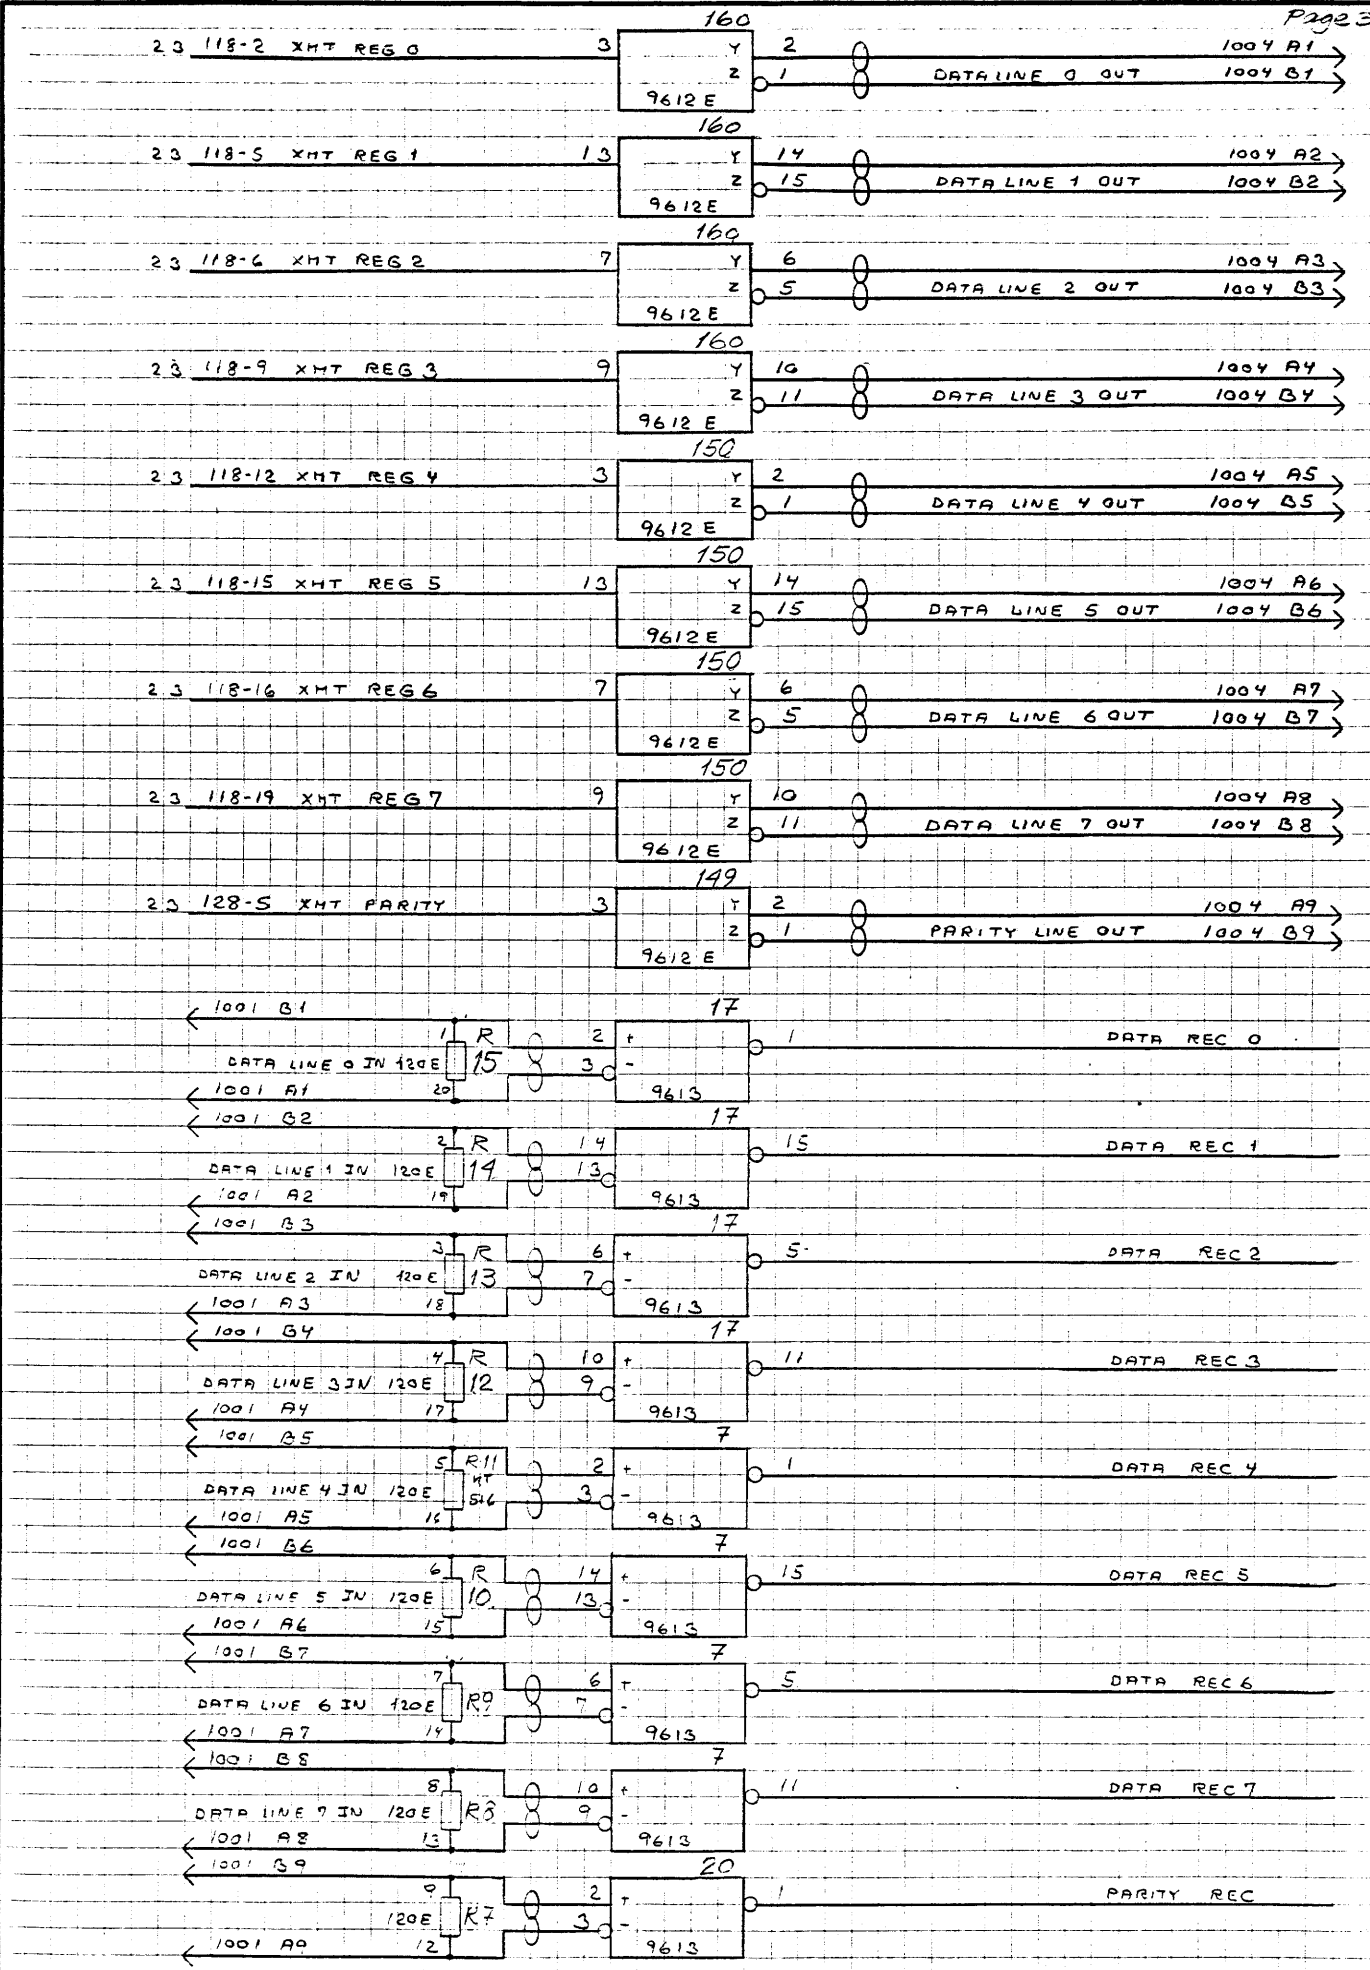 160 Page 3
23 118-2 XMT REG 0 3 Y 2 1004 A1
Z 1 DATA LINE 0 OUT 1004 B1
9612E
160
23 118-5 XMT REG 1 13 Y 14 1004 A2
Z 15 DATA LINE 1 OUT 1004 B2
9612E
160
23 118-6 XMT REG 2 7 Y 6 1004 A3
Z 5 DATA LINE 2 OUT 1004 B3
9612E
160
23 118-9 XMT REG 3 9 Y 10 1004 A4
Z 11 DATA LINE 3 OUT 1004 B4
9612E
150
23 118-12 XMT REG 4 3 Y 2 1004 A5
Z 1 DATA LINE 4 OUT 1004 B5
9612E
150
23 118-15 XMT REG 5 13 Y 14 1004 A6
Z 15 DATA LINE 5 OUT 1004 B6
9612E
150
23 118-16 XMT REG 6 7 Y 6 1004 A7
Z 5 DATA LINE 6 OUT 1004 B7
9612E
150
23 118-19 XMT REG 7 9 Y 10 1004 A8
Z 11 DATA LINE 7 OUT 1004 B8
9612E
149
23 128-5 XMT PARITY 3 Y 2 1004 A9
Z 1 PARITY LINE OUT 1004 B9
9612E
1001 B1 17
1 R 2 + 1 DATA REC 0
DATA LINE 0 IN 120E 15 3 -
1001 A1 20 9613
1001 B2 17
2 R 14 15 DATA REC 1
DATA LINE 1 IN 120E 14 13
1001 A2 19 9613
1001 B3 17
3 R 6 + 5 DATA REC 2
DATA LINE 2 IN 120E 13 7 -
1001 A3 18 9613
1001 B4 17
4 R 10 + 11 DATA REC 3
DATA LINE 3 IN 120E 12 9 -
1001 A4 17 9613
1001 B5 7
5 R11 2 + 1 DATA REC 4
DATA LINE 4 IN 120E 3 -
1001 A5 16 9613
1001 B6 7
6 R 14 + 15 DATA REC 5
DATA LINE 5 IN 120E 10 13 -
1001 A6 15 9613
1001 B7 7
7 6 + 5 DATA REC 6
DATA LINE 6 IN 120E R9 7 -
1001 A7 14 9613
1001 B8 7
8 10 + 11 DATA REC 7
DATA LINE 7 IN 120E R8 9 -
1001 A8 13 9613
1001 B9 20
9 2 + 1 PARITY REC
120E R7 3 -
1001 A9 12 9613